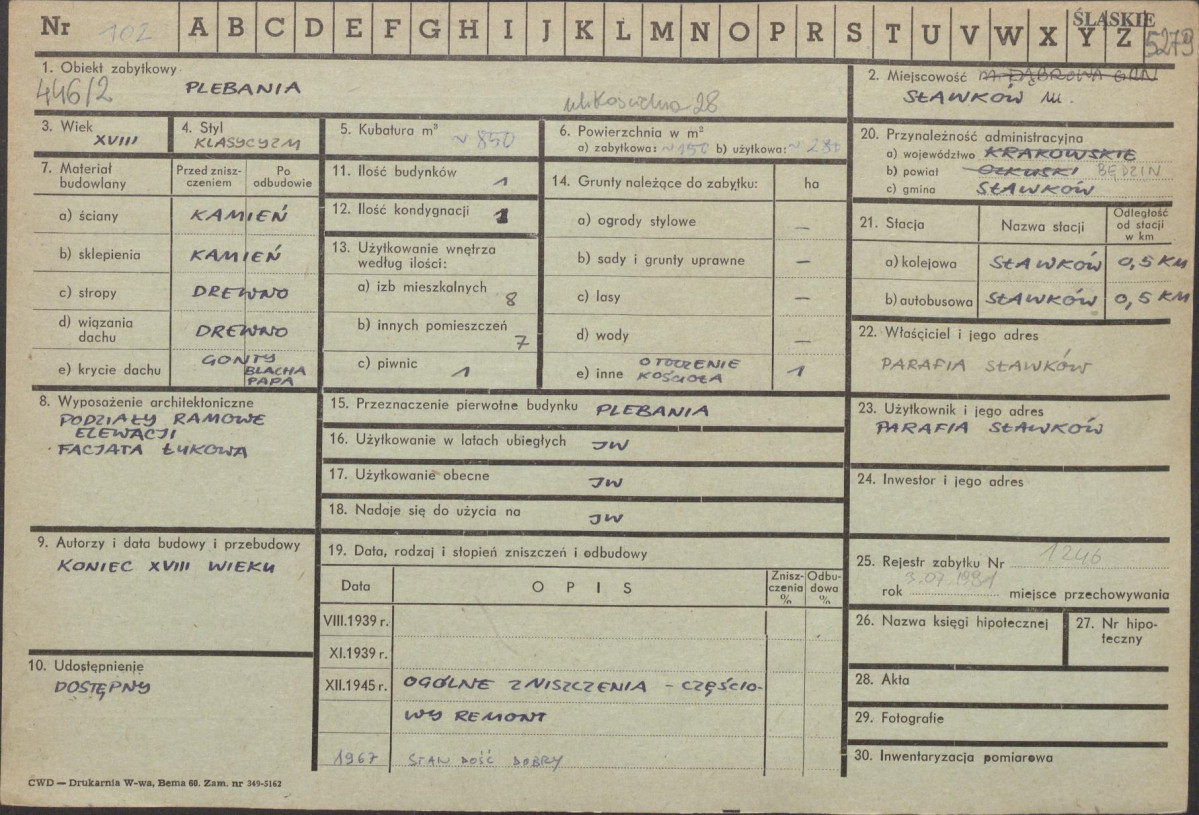 Nr 102 A B C D E F G H I J K L M N O P R S T U V W X Y Z
ŚLĄSKIE
5279
1. Obiekt zabytkowy
446/2 PLEBANIA
ul. Kościelna 28
2. Miejscowość M. DĄBROWA GRN
SŁAWKÓW M.
3. Wiek
XVIII
4. Styl
KLASYCYZM
5. Kubatura m³
~ 850
6. Powierzchnia w m²
a) zabytkowa: ~ 150 b) użytkowa: ~ 280
7. Materiał budowlany
Przed zniszczeniem
Po odbudowie
a) ściany KAMIEŃ
b) sklepienia KAMIEŃ
c) stropy DREWNO
d) wiązania dachu DREWNO
e) krycie dachu GONTY
BLACHA
PAPA
8. Wyposażenie architektoniczne
PODZIAŁY RAMOWE
ELEWACJI
FACJATA ŁUKOWA
9. Autorzy i data budowy i przebudowy
KONIEC XVIII WIEKU
10. Udostępnienie
DOSTĘPNY
11. Ilość budynków 1
12. Ilość kondygnacji 1
13. Użytkowanie wnętrza
według ilości:
a) izb mieszkalnych 8
b) innych pomieszczeń 7
c) piwnic 1
14. Grunty należące do zabytku: ha
a) ogrody stylowe —
b) sady i grunty uprawne —
c) lasy —
d) wody —
e) inne OTOCZENIE
KOŚCIOŁA 1
15. Przeznaczenie pierwotne budynku PLEBANIA
16. Użytkowanie w latach ubiegłych JW
17. Użytkowanie obecne JW
18. Nadaje się do użycia na JW
19. Data, rodzaj i stopień zniszczeń i odbudowy
Data OPIS Zniszczenia % Odbudowa %
VIII.1939 r.
XI.1939 r.
XII.1945 r. OGÓLNE ZNISZCZENIA – CZĘŚCIO-
WY REMONT
1967 STAN DOŚĆ DOBRY
20. Przynależność administracyjna
a) województwo KRAKOWSKIE
b) powiat OLKUSKI BĘDZIN
c) gmina SŁAWKÓW
21. Stacja Nazwa stacji Odległość od stacji w km
a) kolejowa SŁAWKÓW 0,5 KM
b) autobusowa SŁAWKÓW 0,5 KM
22. Właściciel i jego adres
PARAFIA SŁAWKÓW
23. Użytkownik i jego adres
PARAFIA SŁAWKÓW
24. Inwestor i jego adres
25. Rejestr zabytku Nr 1246
rok 3.07.1981 miejsce przechowywania
26. Nazwa księgi hipotecznej
27. Nr hipoteczny
28. Akta
29. Fotografie
30. Inwentaryzacja pomiarowa
CWD — Drukarnia W-wa, Bema 60. Zam. nr 349-5162